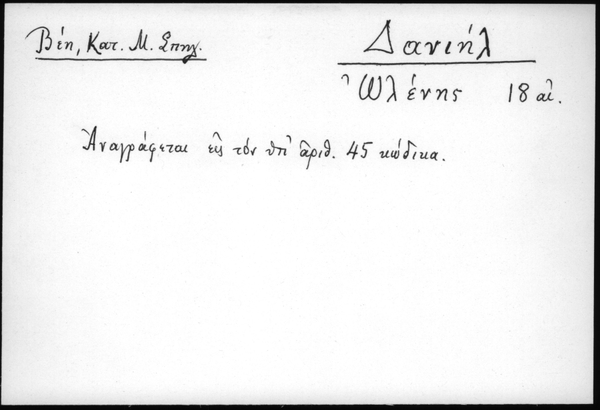 Βέη, Κατ. Μ. Σπηλ.
Δανιήλ
Ὠλένης 18 αἰ.
Ἀναγράφεται εἰς τόν ὑπ' ἀριθ. 45 κώδικα.